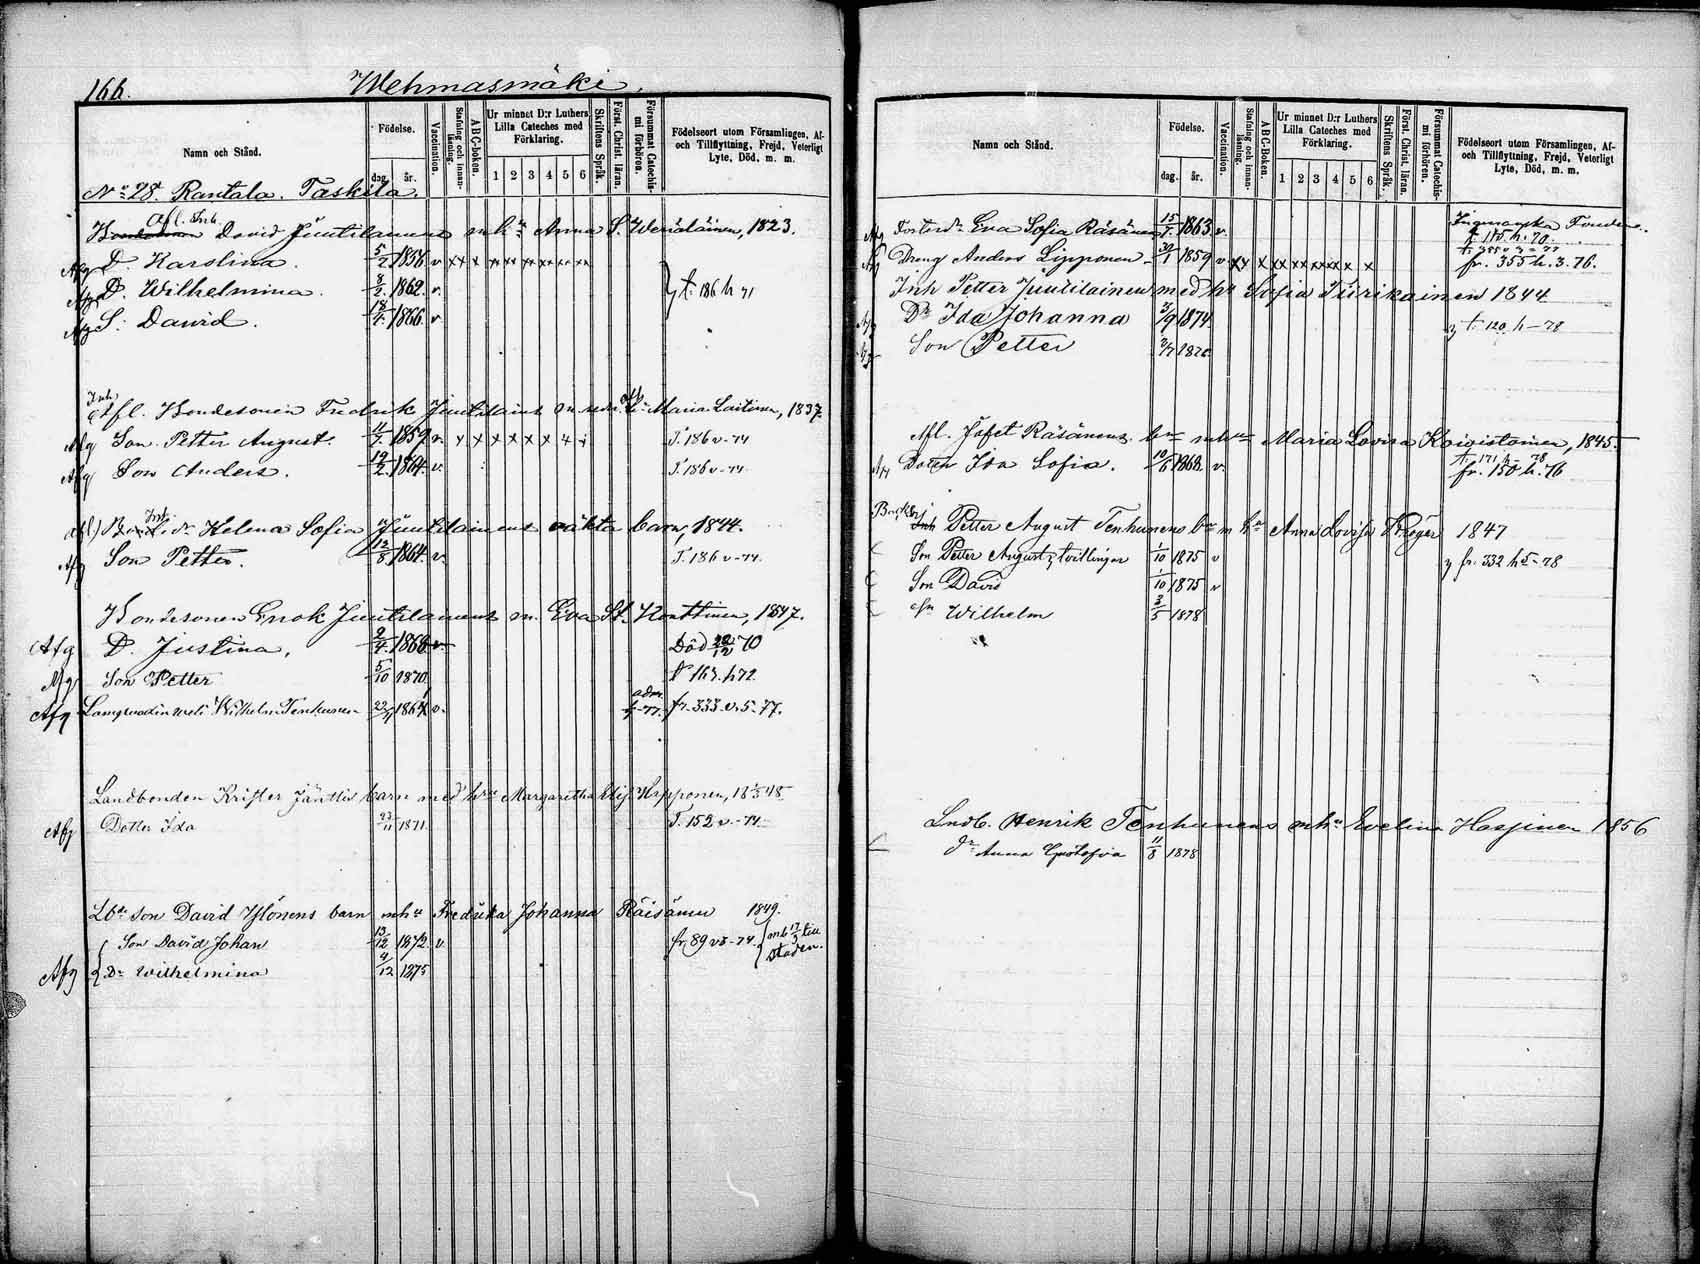 166.
Wehmasmäki.
Namn och Stånd.
Födelse.
dag.
år.
Vaccination.
Stafning och innanläsning.
ABC-boken.
Ur minnet D:r Luthers Lilla Cateches med Förklaring.
1 2 3 4 5 6
Skriftens Språk.
Först. Christ. läran.
Försummat Catechismi förhören.
Födelseort utom Församlingen, Af- och Tillflyttning, Frejd, Veterligt Lyte, Död, m. m.
No 28. Rantala. Taskila.
Afl. Inh.
David Juutilainens mh:u Anna S. Weriäläinen, 1823.
Afg D. Karolina. 5/2 1858 v. x x x x x x x x x
Afg D. Wilhelmina. 8/2 1862. v. } t. 186 h 71
Afg S. David. 18/4 1866 v.
Inh
Afl. Bondesonen Fredrik Juutilains Maria Laitinen, 1837.
Afg Son Petter August. 11/7 1859 v. x x x x x x T. 186 v-74
Afg Son Anders. 19/2 1864. v. T. 186 v-74.
Inh.
Helena Sofia Juutilainens oäkta barn, 1844.
Afg Son Petter. 12/8 1864. v. T. 186 v-74.
Bondesonen Enok Juutilainens m. Eva St. Konttinen, 1847.
Afg D. Justina. 2/4 1868 v. Död 22/12 70
Afg Son Petter 5/10 1870. t. 163. h 72.
Afg Wilhelm Tenhunen 23/9 1864 v. adm. -77. fr. 333. v. 5. 77.
Landbonden Krister Jänttis barn med h:u Margaretha Elis. 1848
Afg Dotter Ida 23/11 1871. T. 152 v.-74.
Lb:de son David Ylönens barn mh:u Fredrika Johanna Räisänen 1849.
Son David Johan 13/12 1872. v. fr. 89 v 3-74. till staden.
Afg D:r Wilhelmina 4/12 1875
Namn och Stånd.
Födelse.
dag.
år.
Vaccination.
Stafning och innanläsning.
ABC-boken.
Ur minnet D:r Luthers Lilla Cateches med Förklaring.
1 2 3 4 5 6
Skriftens Språk.
Först. Christ. läran.
Försummat Catechismi förhören.
Födelseort utom Församlingen, Af- och Tillflyttning, Frejd, Veterligt Lyte, Död, m. m.
Afg Fosterdr Eva Sofia Räsänen 15/5 1863 v. t. 115. h. 70.
Afg Dreng Anders Lipponen 30/1 1859 v. x x x x x x x x x x fr. 355 h. 3. 76.
Inh Petter Juutilainens med h:u Sofia Tiirikainen 1844
Afg D:r Ida Johanna 3/9 1874. } t. 120. h-78
Son Petter
Afl. Jafet Räsänens b:n mh:u Maria Lovisa Koivistoinen, 1845.
Afg Dotter Ida Sofia. 10/6 1868. v. t. 171 h-78 fr. 150 h. 76
Inh Petter August Tenhunens b:n m h:u Anna Lovisa Kröger 1847
Son Petter August } tvillingar 1/10 1875 v } fr. 332 h 5-78
Son David 1/10 1875 v
Sn Wilhelm 3/5 1878
Lndb. Henrik Tenhunens mh:u Evelina Heiskinen 1856
d:r Anna Gustafva 11/8 1878